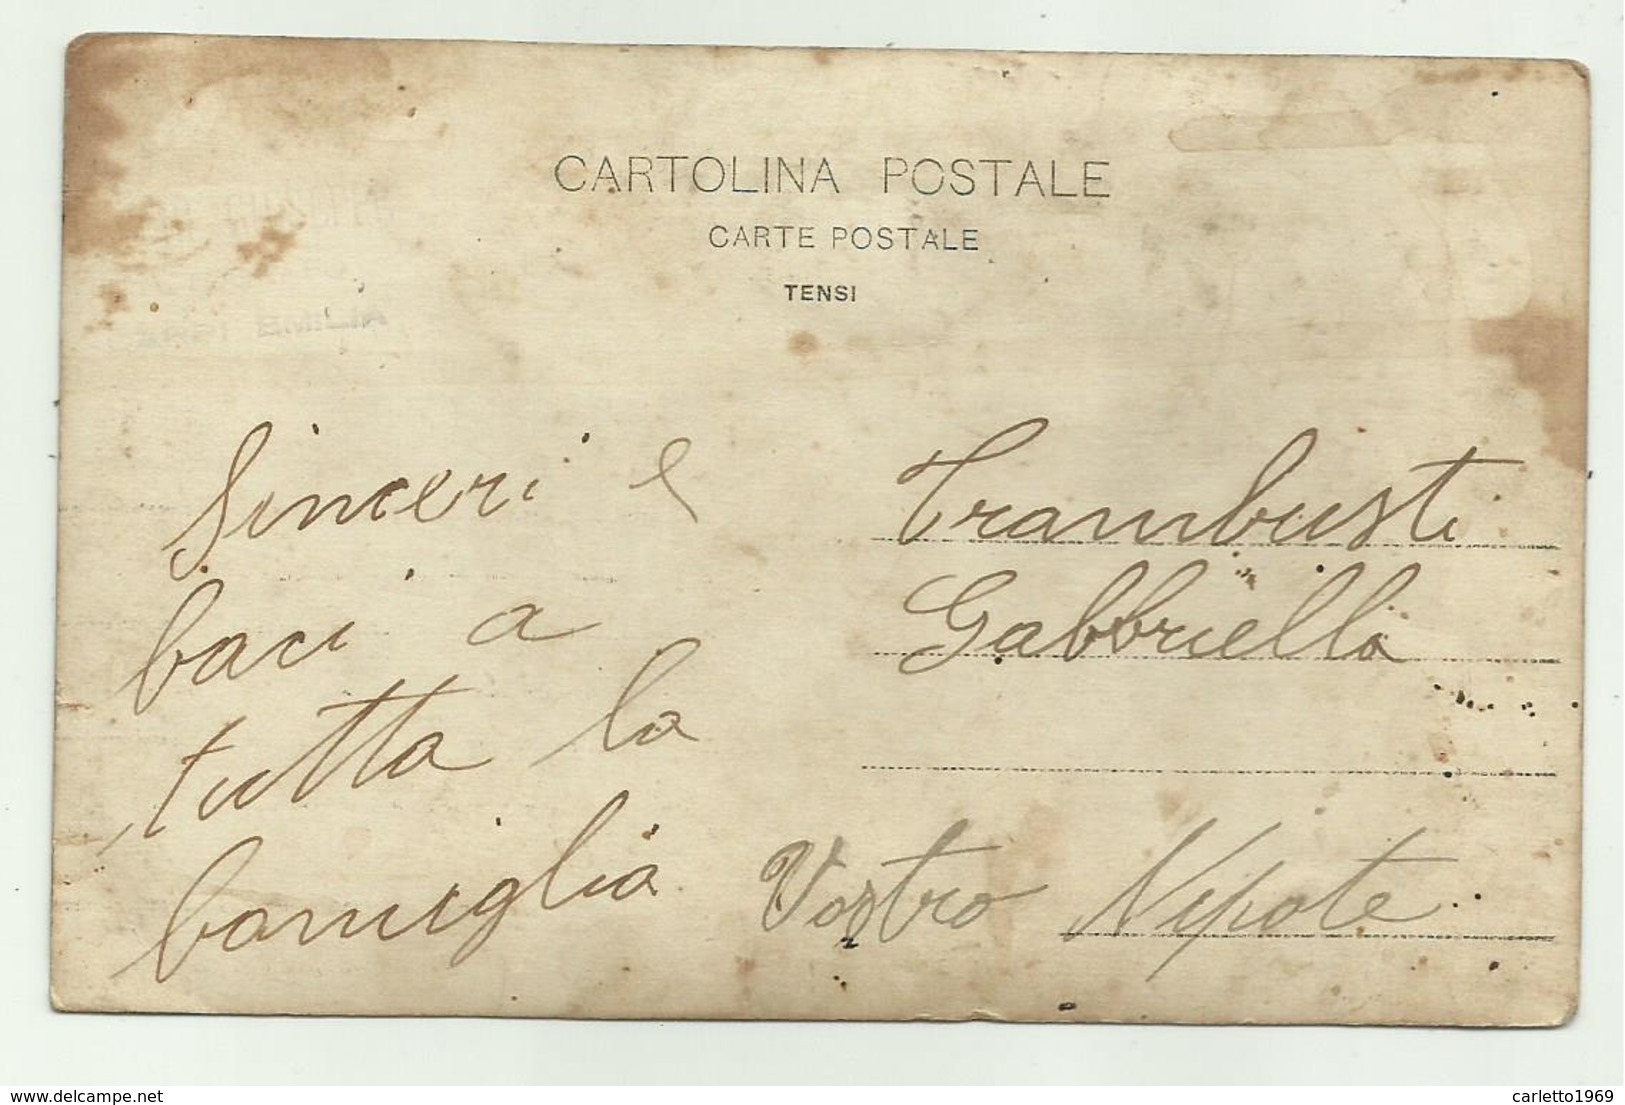 CARTOLINA POSTALE
CARTE POSTALE
TENSI
EMILIA
Sinceri e
baci a
tutta la
famiglia
Trambusti
Gabbriella
Vostro Nipote
delcampe.net
carletto1969